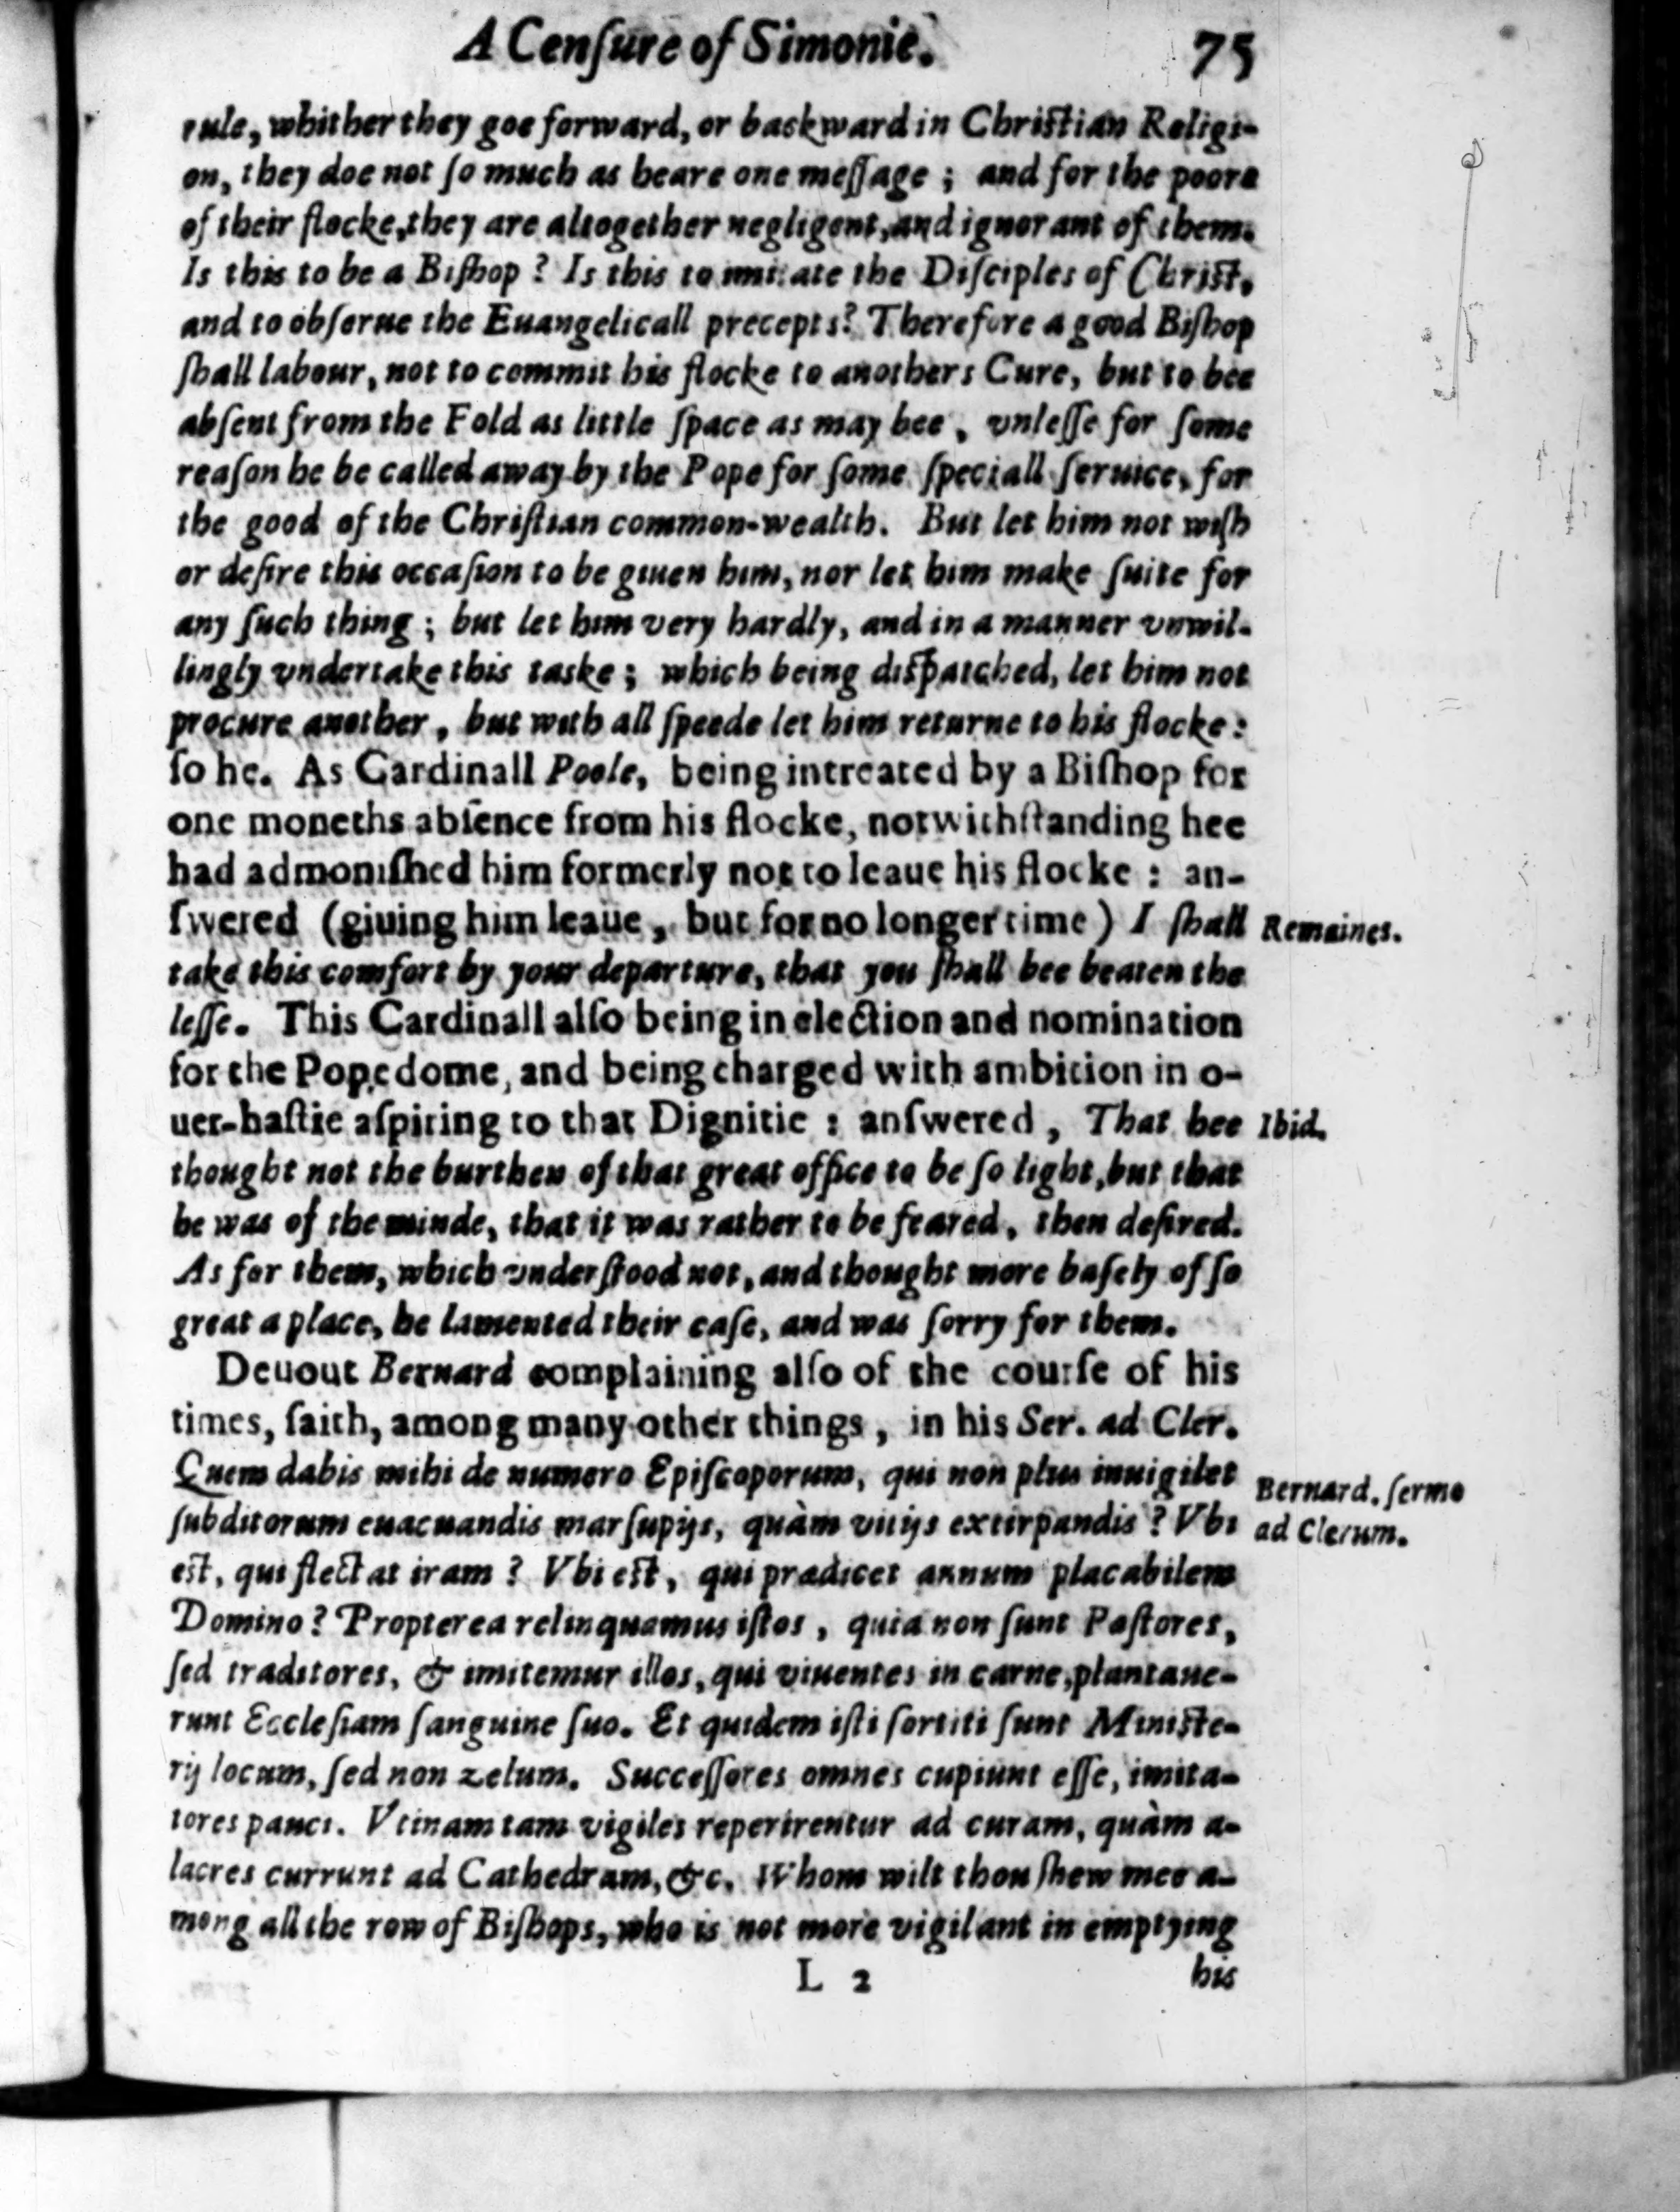 A Cenſure of Simonie. 75
rule, whither they goe forward, or backward in Chriſtian Religi-
on, they doe not ſo much as beare one meſſage ; and for the poore
of their flocke, they are altogether negligent, and ignorant of them.
Is this to be a Biſhop ? Is this to imitate the Diſciples of Chriſt,
and to obſerue the Euangelicall precepts? Therefore a good Biſhop
ſhall labour, not to commit his flocke to anothers Cure, but to bee
abſent from the Fold as little ſpace as may bee, vnleſſe for ſome
reaſon he be called away by the Pope for ſome ſpeciall ſeruice, for
the good of the Chriſtian common-wealth. But let him not wiſh
or deſire this occaſion to be giuen him, nor let him make ſuite for
any ſuch thing ; but let him very hardly, and in a manner vnwil-
lingly vndertake this taske ; which being diſpatched, let him not
procure another, but with all ſpeede let him returne to his flocke :
ſo he. As Cardinall Poole, being intreated by a Biſhop for
one moneths abſence from his flocke, notwithſtanding hee
had admoniſhed him formerly not to leaue his flocke : an-
ſwered (giuing him leaue, but for no longer time ) I ſhall
Remaines.
take this comfort by your departure, that you ſhall bee beaten the
leſſe. This Cardinall alſo being in election and nomination
for the Popedome, and being charged with ambition in o-
uer-haſtie aſpiring to that Dignitie : anſwered, That hee
Ibid.
thought not the burthen of that great office to be ſo light, but that
he was of the minde, that it was rather to be feared, then deſired.
As for them, which vnderſtood not, and thought more baſely of ſo
great a place, he lamented their caſe, and was ſorry for them.
Deuout Bernard complaining alſo of the courſe of his
times, ſaith, among many other things, in his Ser. ad Cler.
Quem dabis mihi de numero Epiſcoporum, qui non plus inuigilet
Bernard. ſermo
ſubditorum euacuandis marſupijs, quàm vitijs extirpandis ? Vbi
ad Clerum.
eſt, qui flectat iram ? Vbi eſt, qui prædicet annum placabilem
Domino ? Propterea relinquamus iſtos, quia non ſunt Paſtores,
ſed traditores, & imitemur illos, qui viuentes in carne, plantaue-
runt Eccleſiam ſanguine ſuo. Et quidem iſti ſortiti ſunt Miniſte-
rij locum, ſed non zelum. Succeſſores omnes cupiunt eſſe, imita-
tores pauci. Vtinam tam vigiles reperirentur ad curam, quàm a-
lacres currunt ad Cathedram, &c. Whom wilt thou ſhew mee a-
mong all the row of Biſhops, who is not more vigilant in emptying
L 2 his